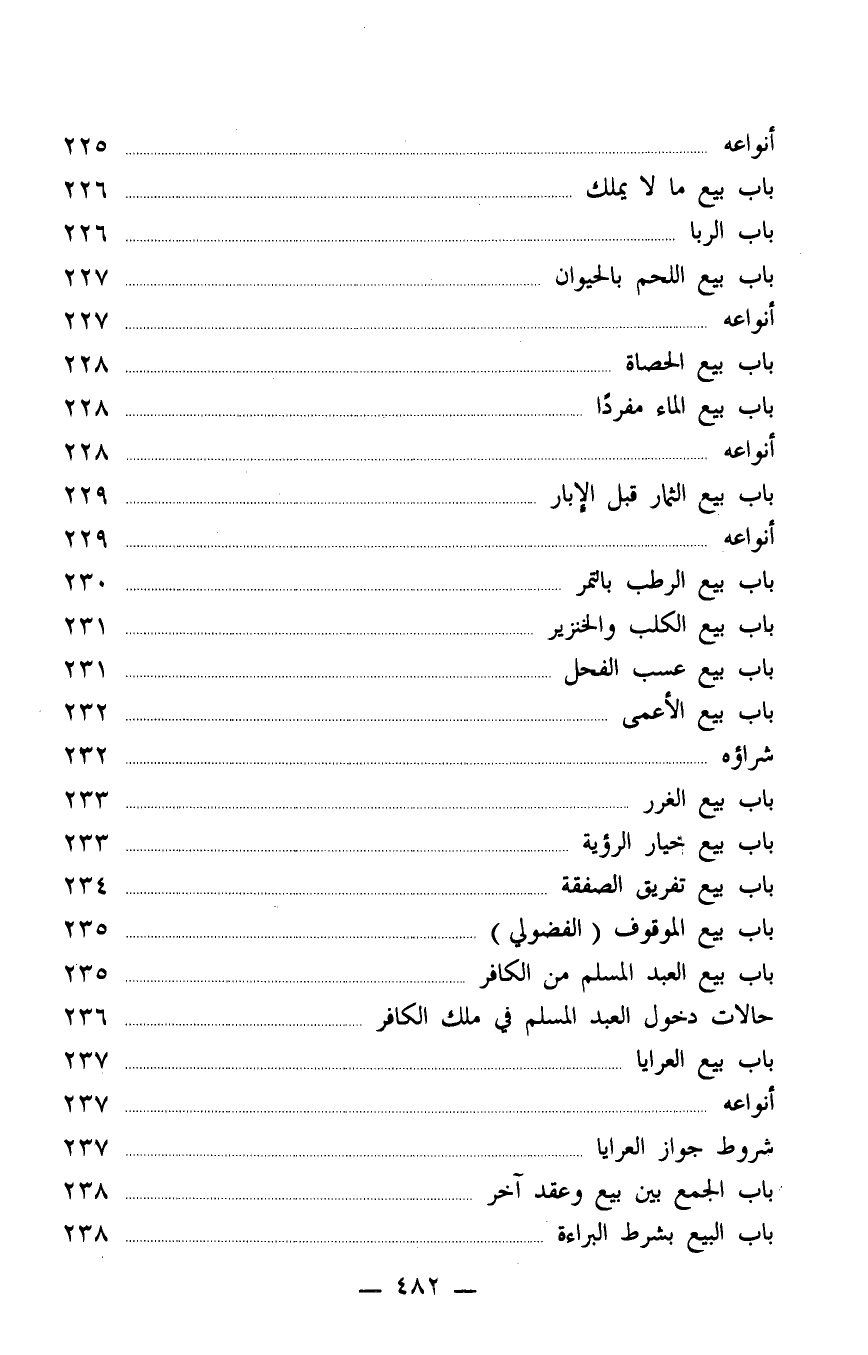 أنواعه ٢٢٥
باب بيع ما لا يملك ٢٢٦
باب الربا ٢٢٦
باب بيع اللحم بالحيوان ٢٢٧
أنواعه ٢٢٧
باب بيع الحصاة ٢٢٨
باب بيع الماء مفردًا ٢٢٨
أنواعه ٢٢٨
باب بيع الثمار قبل الإبار ٢٢٩
أنواعه ٢٢٩
باب بيع الرطب بالتمر ٢٣٠
باب بيع الكلب والخنزير ٢٣١
باب بيع عسب الفحل ٢٣١
باب بيع الأعمى ٢٣٢
شراؤه ٢٣٢
باب بيع الغرر ٢٣٣
باب بيع خيار الرؤية ٢٣٣
باب بيع تفريق الصفقة ٢٣٤
باب بيع الموقوف ( الفضولي ) ٢٣٥
باب بيع العبد المسلم من الكافر ٢٣٥
حالات دخول العبد المسلم في ملك الكافر ٢٣٦
باب بيع العرايا ٢٣٧
أنواعه ٢٣٧
شروط جواز العرايا ٢٣٧
باب الجمع بين بيع وعقد آخر ٢٣٨
باب البيع بشرط البراءة ٢٣٨
— ٤٨٢ —